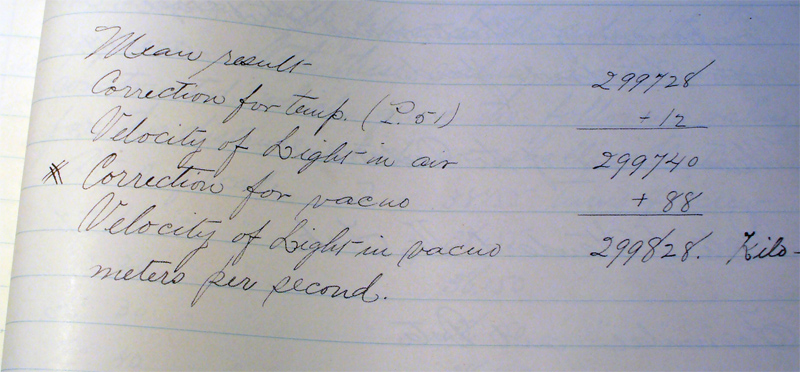 Mean result 299728
Correction for temp. (P. 51) + 12
Velocity of Light in air 299740
* Correction for vacuo + 88
Velocity of Light in vacuo 299828. Kilo-
meters per second.